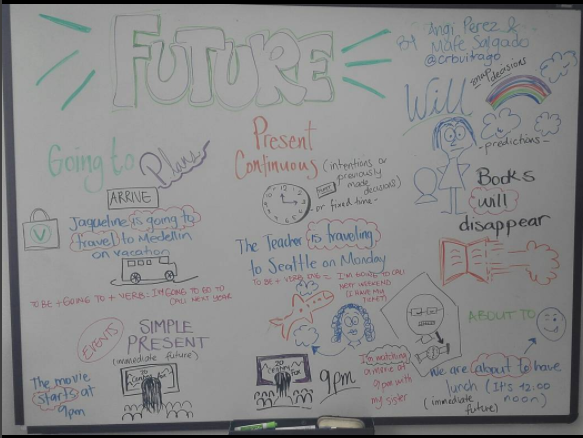 FUTURE
By Angi Perez &
Mafe Salgado
@crbuitrago
Going to Plans
ARRIVE
V
Jaqueline is going to
travel to Medellin
on vacation
TO BE + GOING TO + VERB
CALL NEXT YEAR
EVENTS
SIMPLE
PRESENT
(immediate future)
20
Century Fox
The movie
starts at
9pm
Present
Continuous
(intentions or
previously
made
decisions)
- or fixed time -
The Teacher is traveling
to Seattle on Monday
TO BE + VERB ING = I'M GOING TO CALL
NEXT WEEKEND
(I HAVE MY
TICKET)
20
Century Fox
9pm
I'm watching
a movie at
9pm with
my sister
Will
snap decisions
- predictions -
Books
will
disappear
ABOUT TO
We are about to have
lunch (It's 12:00
noon)
(immediate
future)